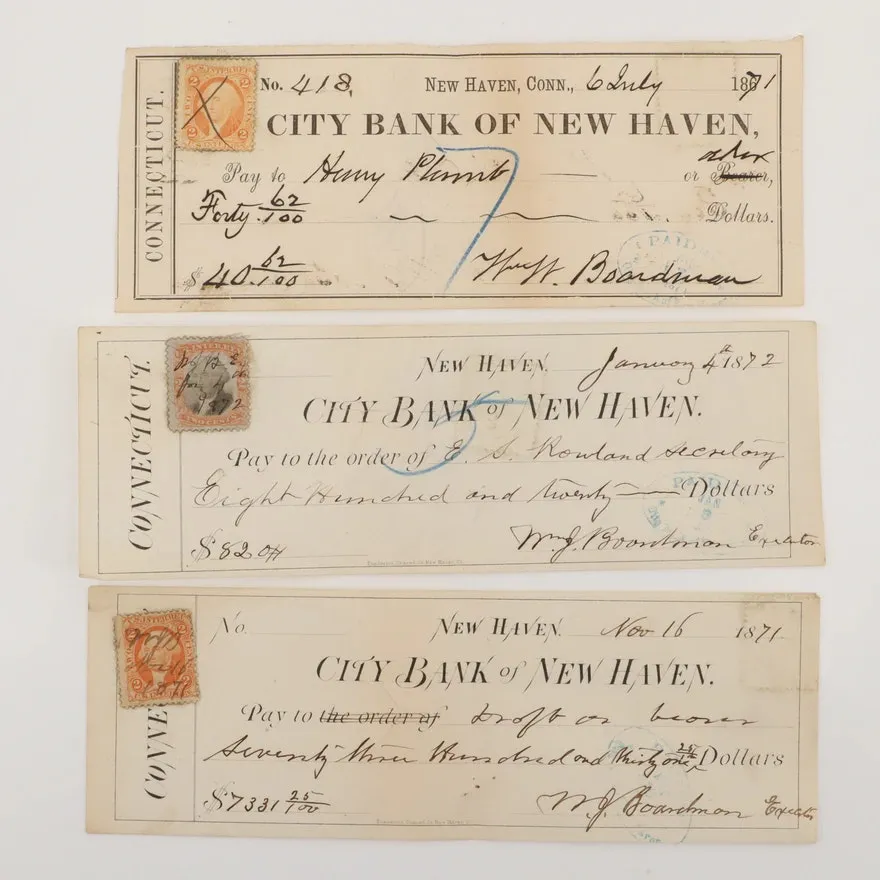 CONNECTICUT.
No. 418, NEW HAVEN, CONN., 6 July 1871
CITY BANK OF NEW HAVEN,
Pay to Henry Plumb or Bearer,
Forty 62/100 Dollars.
$40 62/100 Boardman
PAID
CONNECTICUT.
NEW HAVEN. January 4th 1872
CITY BANK of NEW HAVEN.
Pay to the order of E. S. Rowland Secretary
Eight Hundred and twenty Dollars
$820 Wm J. Boardman Executor
PAID
CONNE
No. NEW HAVEN. Nov 16 1871
CITY BANK of NEW HAVEN.
Pay to the order of Draft or bearer
Seventy three Hundred and thirty one 25/100 Dollars
$7331 25/100 W. J. Boardman Executor